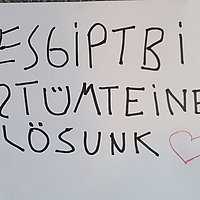 ESGiPTBi
STÜMTEiNE
LÖSUNK